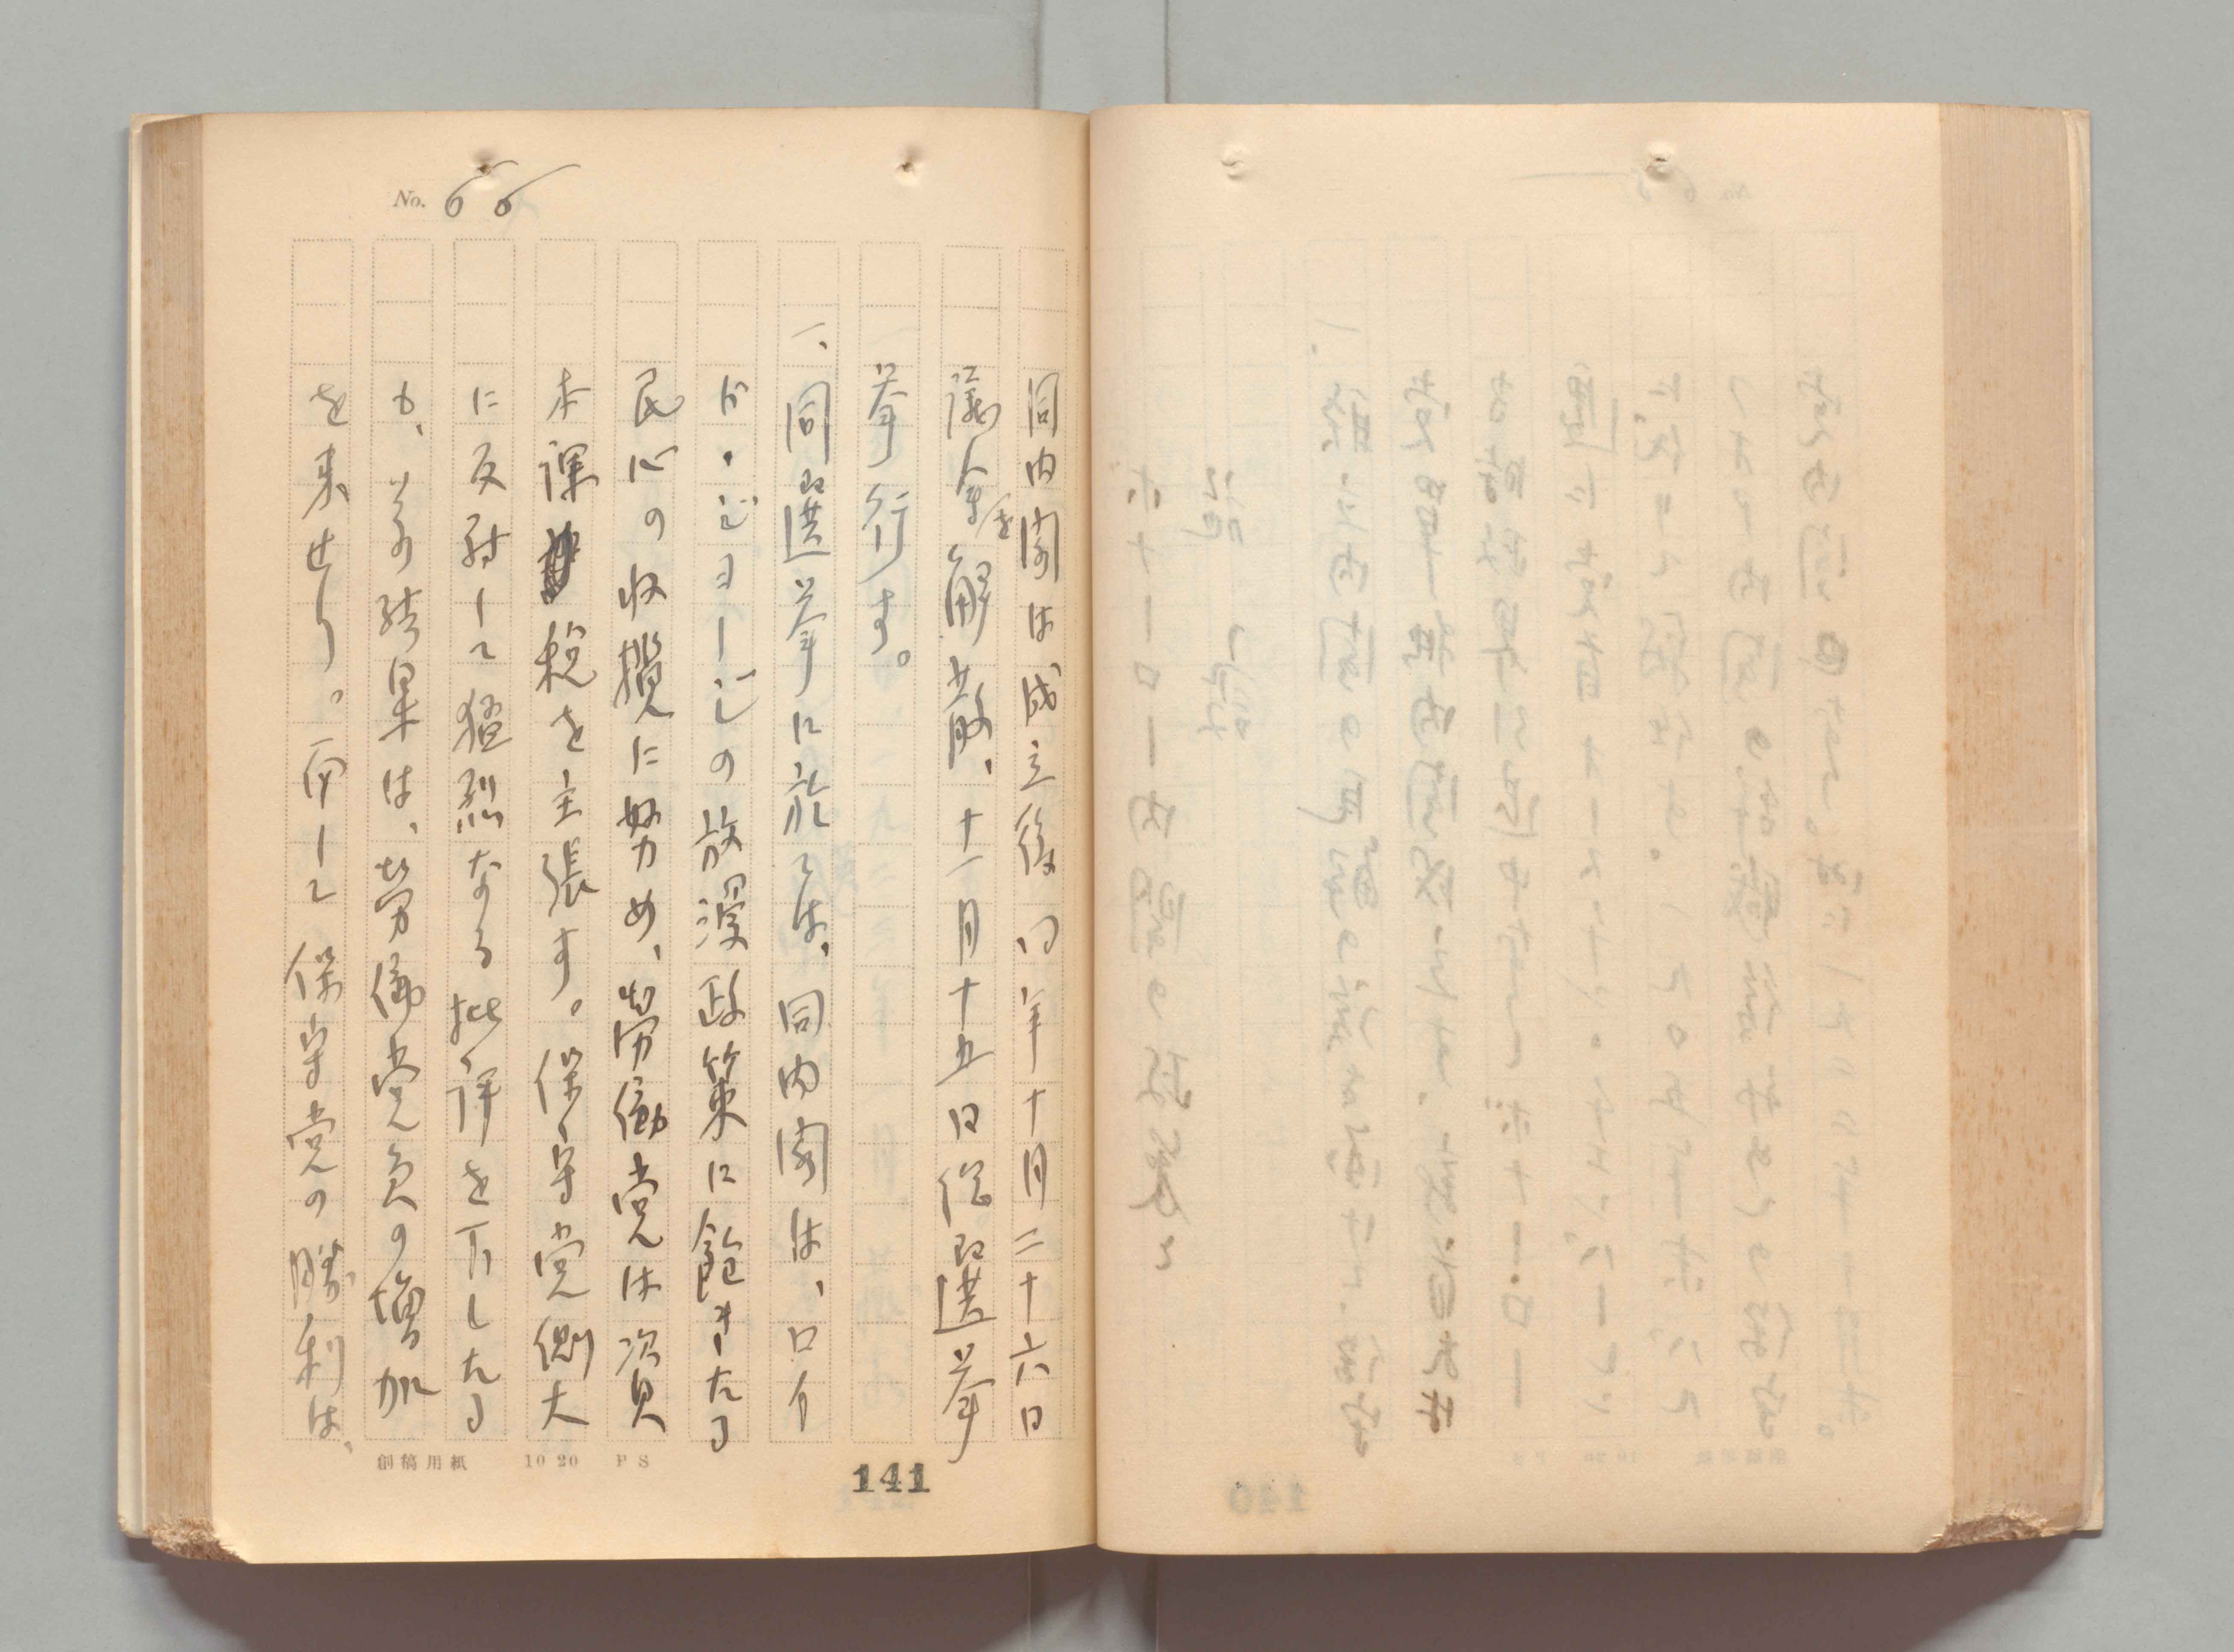 No. 66
同内閣は成立後同年十月二十六日
議会を解散、十一月十五日総選挙
挙行す。
一、同選挙に於ては、同内閣は、ロイ
ド・ジヨージの放漫政策に飽きたる
民心の収攬に努め、労働党は資
本課税を主張す。保守党側大
に反対して猛烈なる批評を下したる
も、其の結果は、労働党員の増加
を来せり。而して保守党の勝利は、
創稿用紙 10 20 P S
141